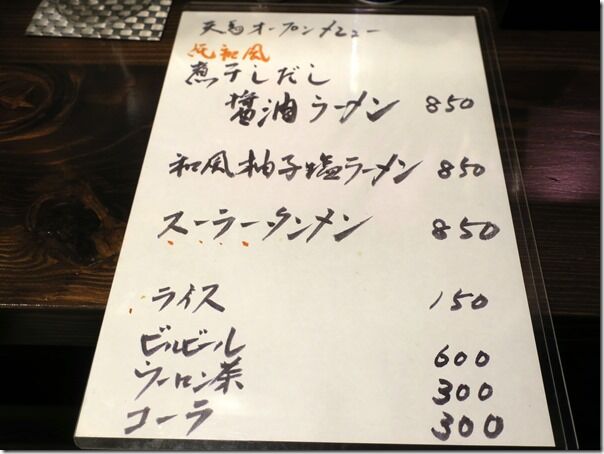 天馬オープンメニュー
純和風
煮干しだし
醤油ラーメン 850
和風柚子塩ラーメン 850
スーラータンメン 850
ライス 150
ビルビール 600
ウーロン茶 300
コーラ 300